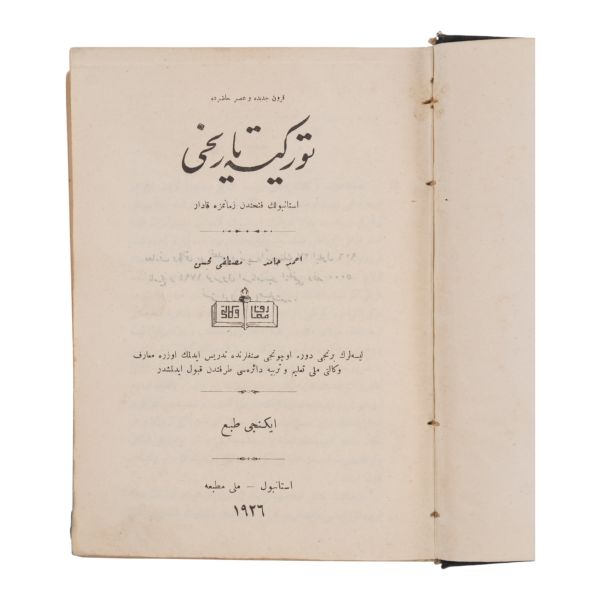 قرون جدیده و عصر حاضرده
تورکیه تاریخی
استانبولك فتحندن زمانمزه قادار
احمد حامد — مصطفی محسن
معارف
وکالتی
لیسه‌لرك برنجی دوره اوچونجی صنفلرنده تدریس ایدلمك اوزره معارف
وکالتی ملی تعلیم و تربیه دائره‌سی طرفندن قبول ایدلمشدر
ایکنجی طبع
استانبول — ملی مطبعه
۱۹۲۶